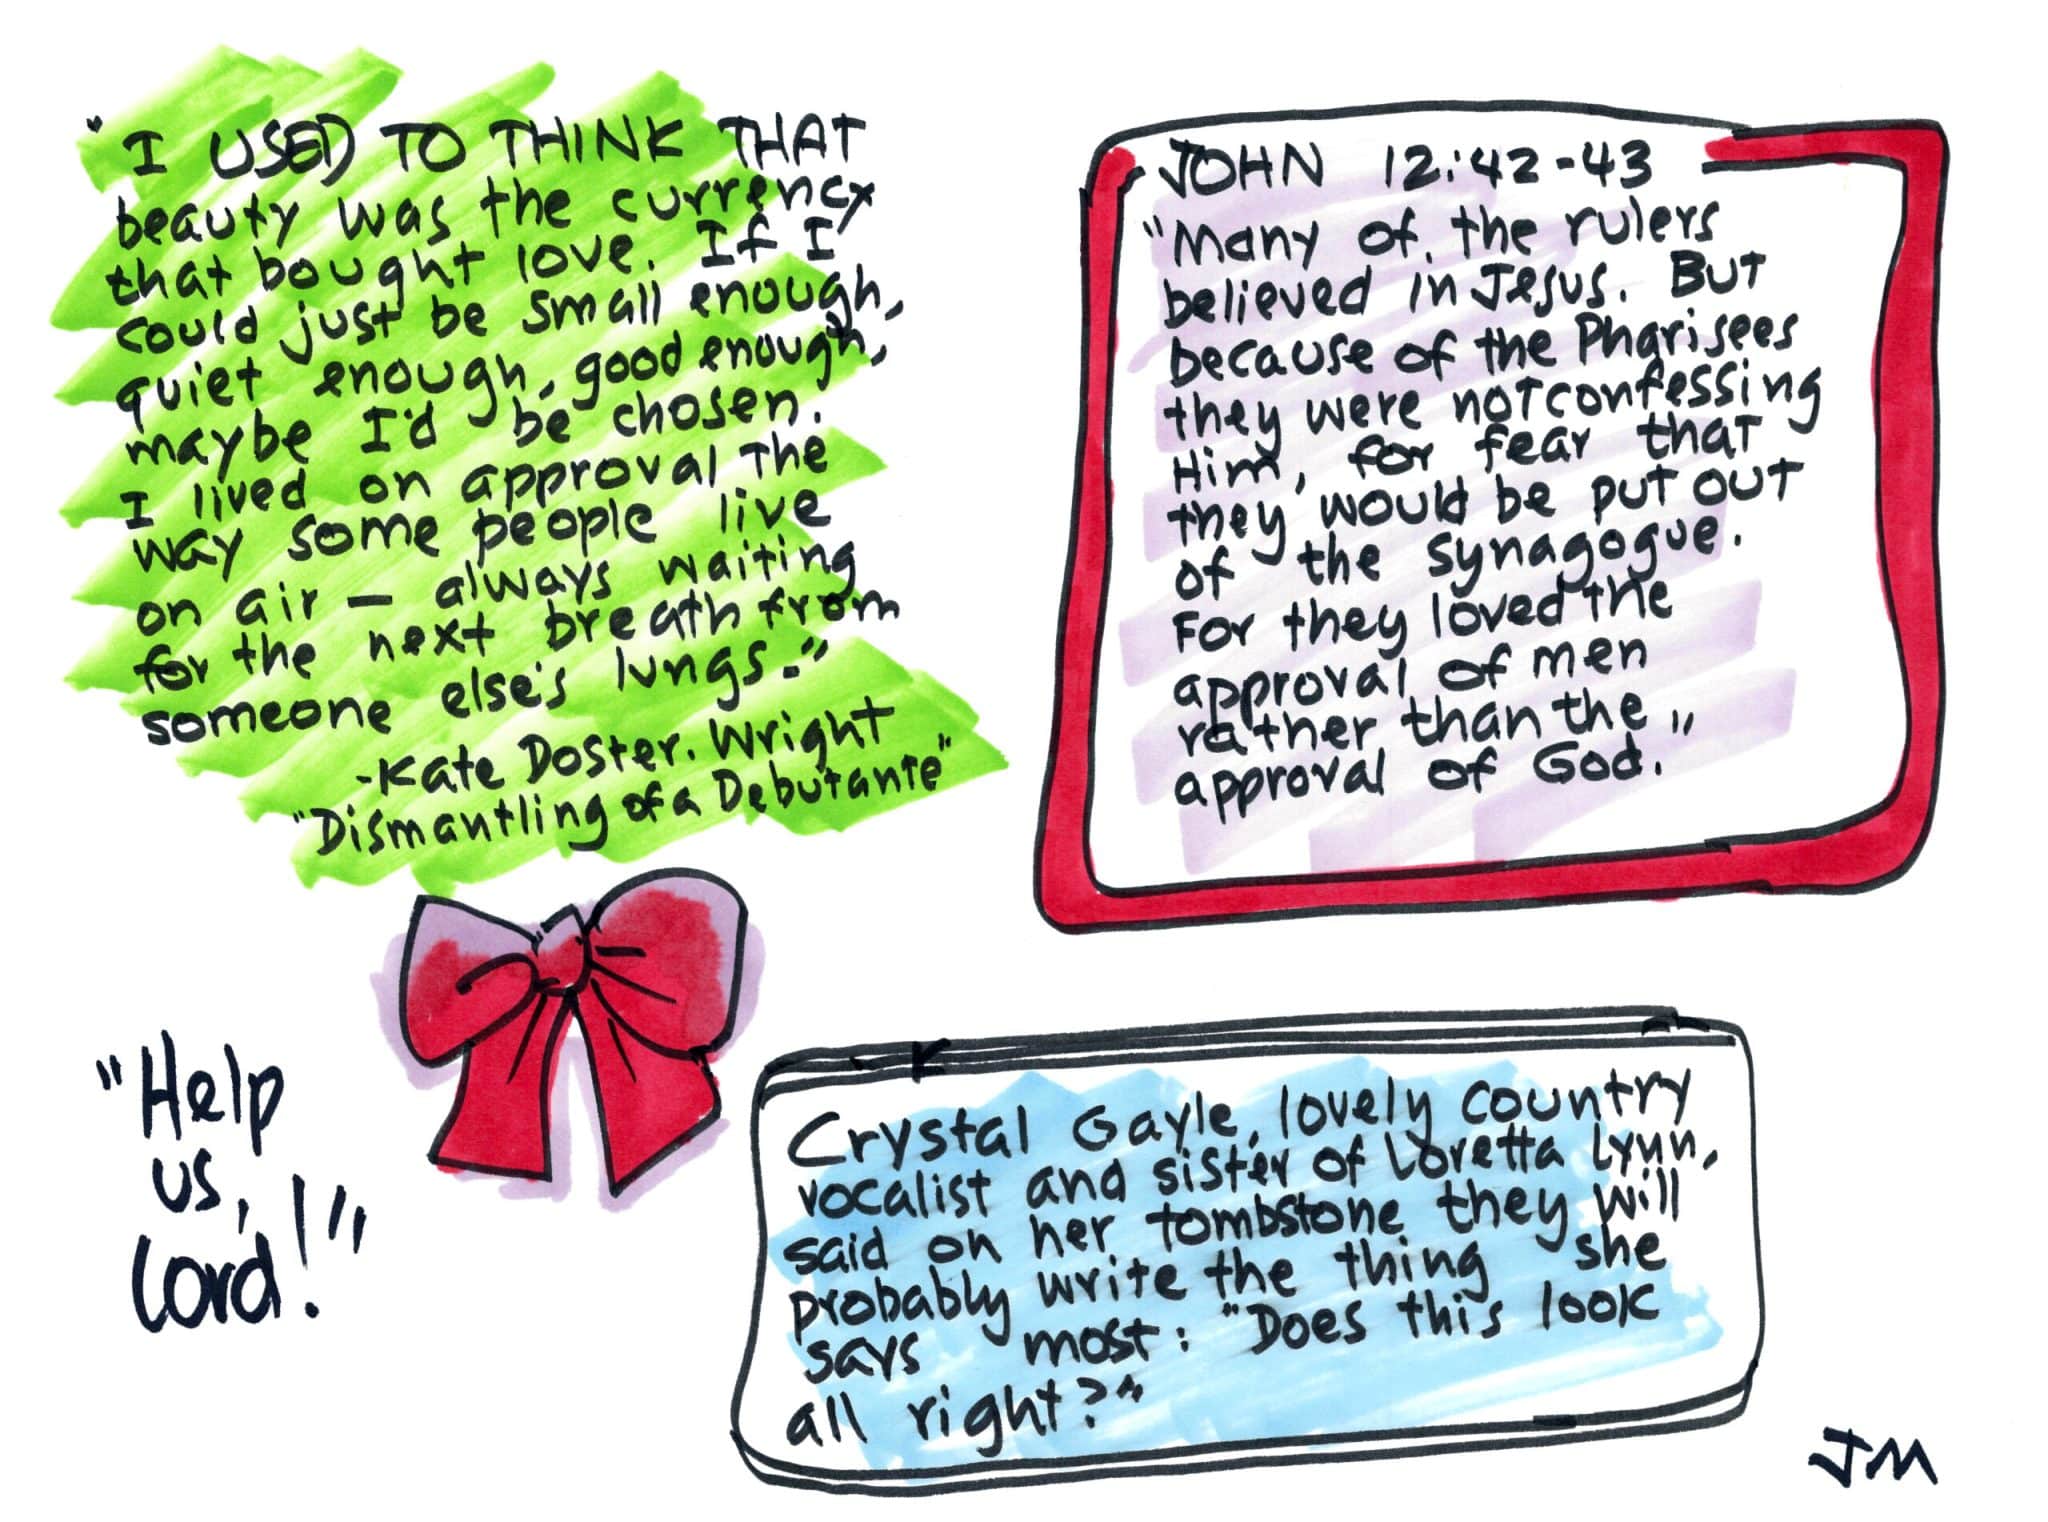 "I USED TO THINK THAT
beauty was the currency
that bought love. If I
could just be small enough,
quiet enough, good enough,
maybe I'd be chosen.
I lived on approval the
way some people live
on air — always waiting
for the next breath from
someone else's lungs."
-Kate Doster. Wright
"Dismantling of a Debutante"
JOHN 12:42-43
"Many of the rulers
believed in Jesus. But
because of the Pharisees
they were not confessing
Him, for fear that
they would be put out
of the synagogue.
For they loved the
approval of men
rather than the
approval of God."
"Help
us,
Lord!"
Crystal Gayle, lovely country
vocalist and sister of Loretta Lynn,
said on her tombstone they will
probably write the thing she
says most: "Does this look
all right?"
JM